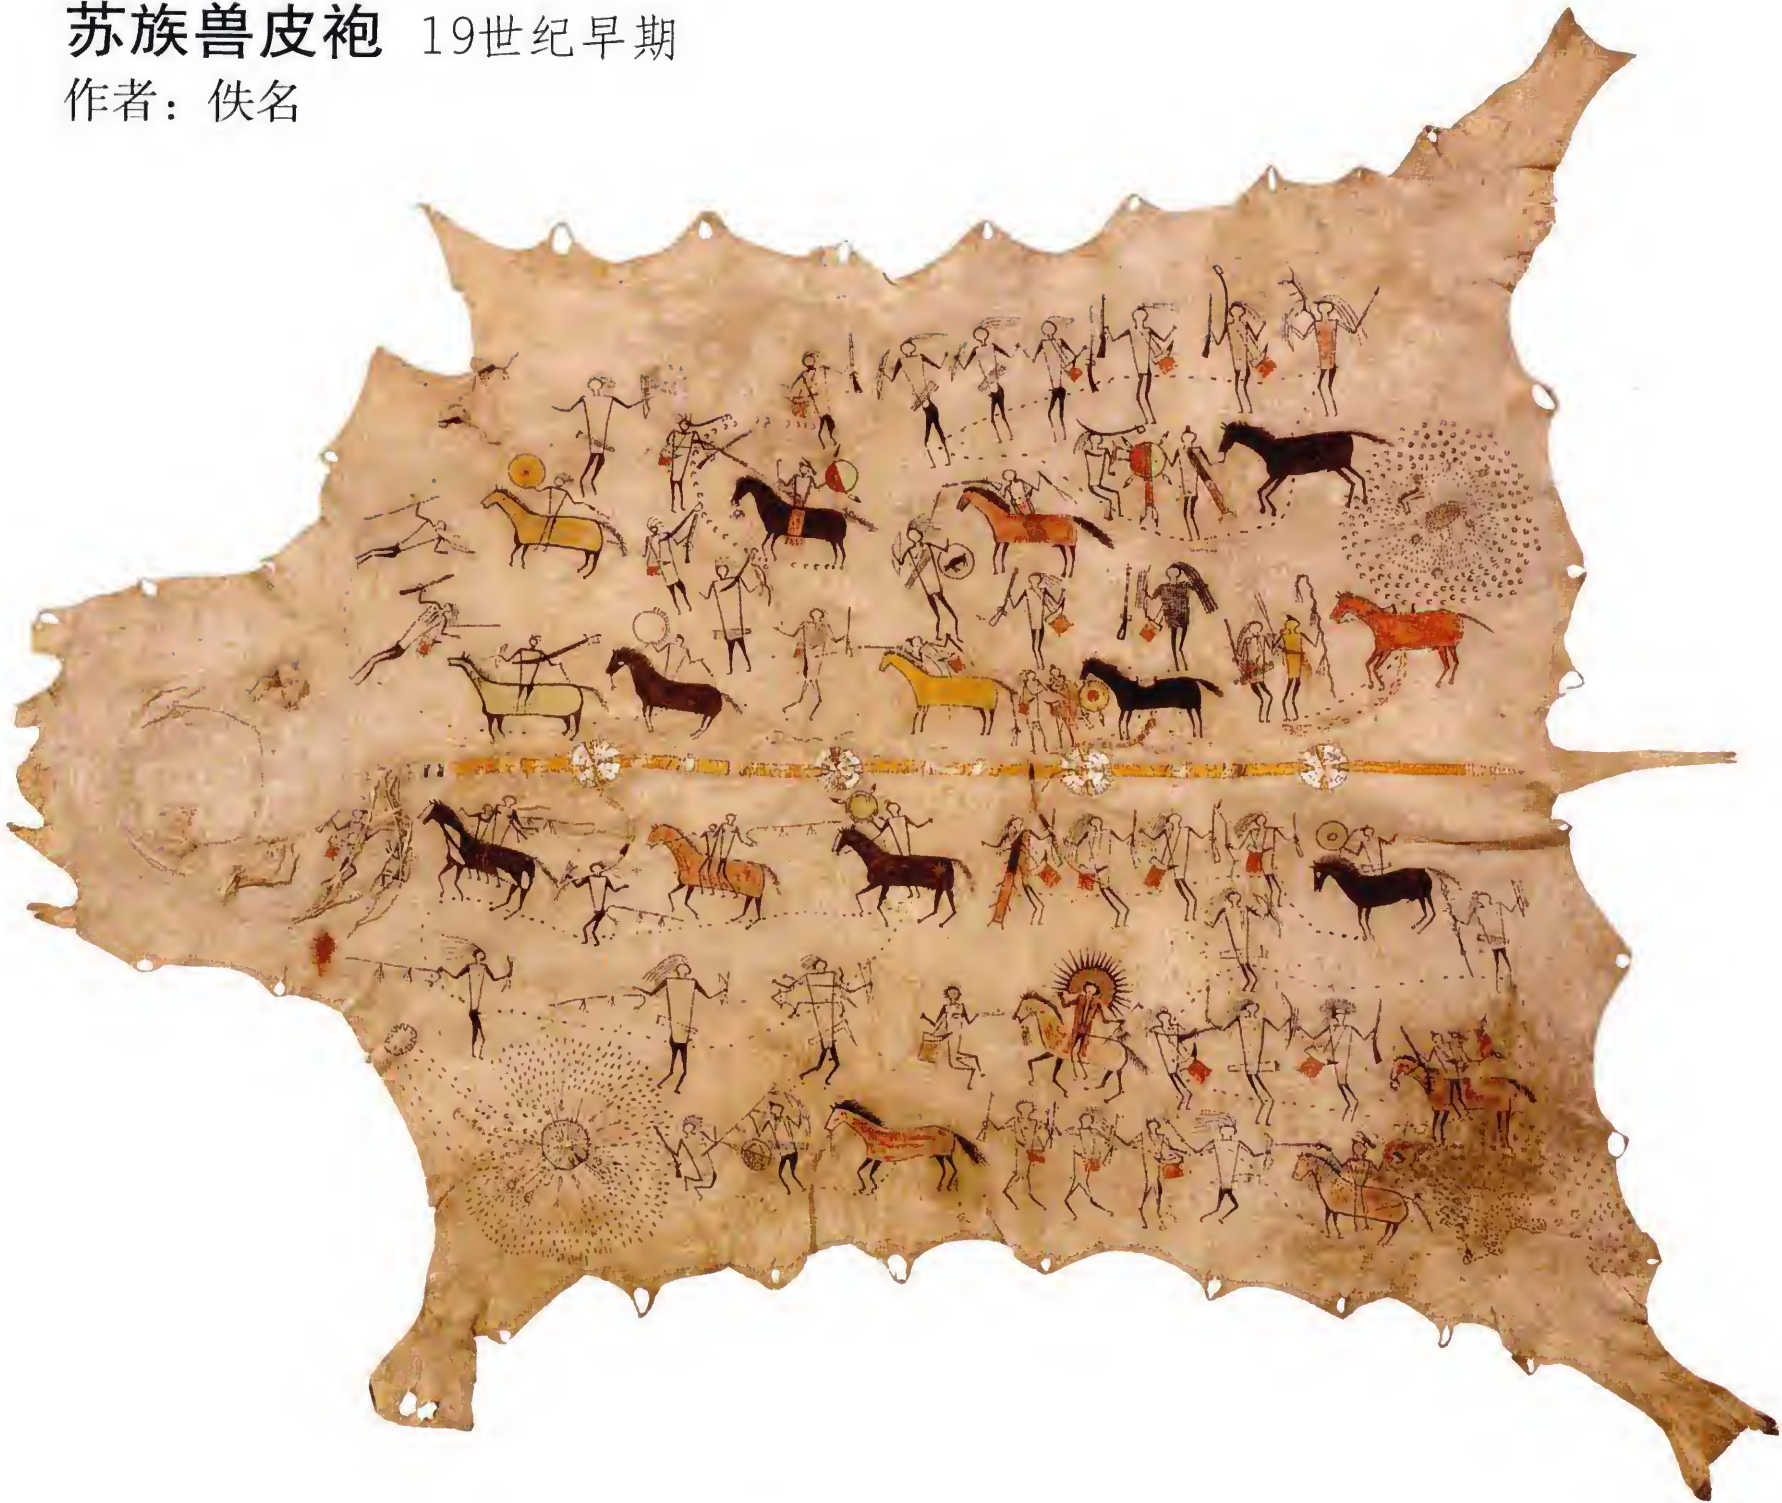 苏族兽皮袍 19世纪早期
作者：佚名